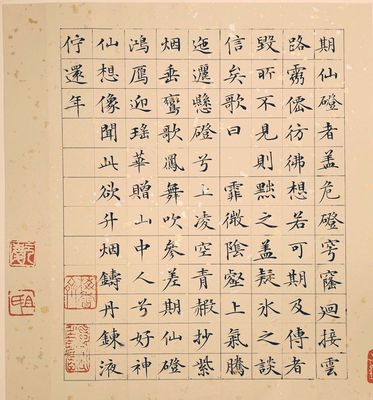 期仙磴者盖危磴穹窿迴接雲
路霛僊彷彿想若可期及傳者
毀所不見則黜之盖疑氷之談
信矣歌曰 霏微陰壑上氣騰
迤邐懸磴兮上凌空青赮抄紫
烟垂鸞歌鳳舞吹參差期仙磴
鴻鴈迎瑤華贈山中人兮好神
仙想像聞此欲升烟鑄丹鍊液
佇還年